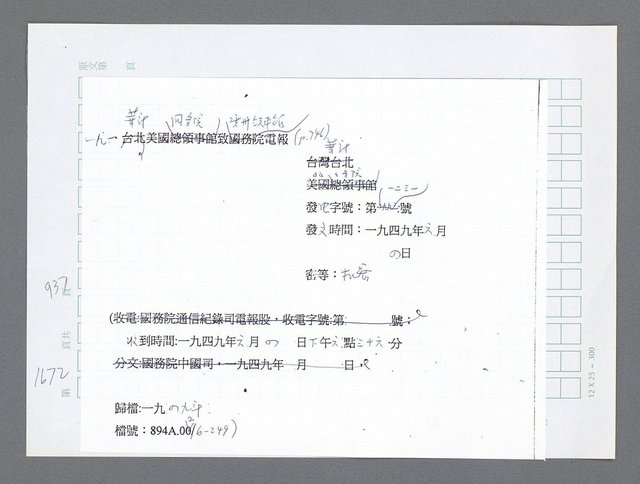 原文第 頁
華府 國務院
一九一 台北美國總領事館致國務院電報 (p.746)
華府
台灣台北
國務院
美國總領事館
一二三一
發電字號：第 號
發文時間：一九四九年六月
四日
密等：機密
937 頁
(收電:國務院通信紀錄司電報股，收電字號:第 號；
收到時間:一九四九年六月四日下午六點三十六分
分文:國務院中國司，一九四九年 月 日
頁共
1672
第
歸檔:一九四九年
檔號：894A.00/(6-249)
12 X 25 = 300